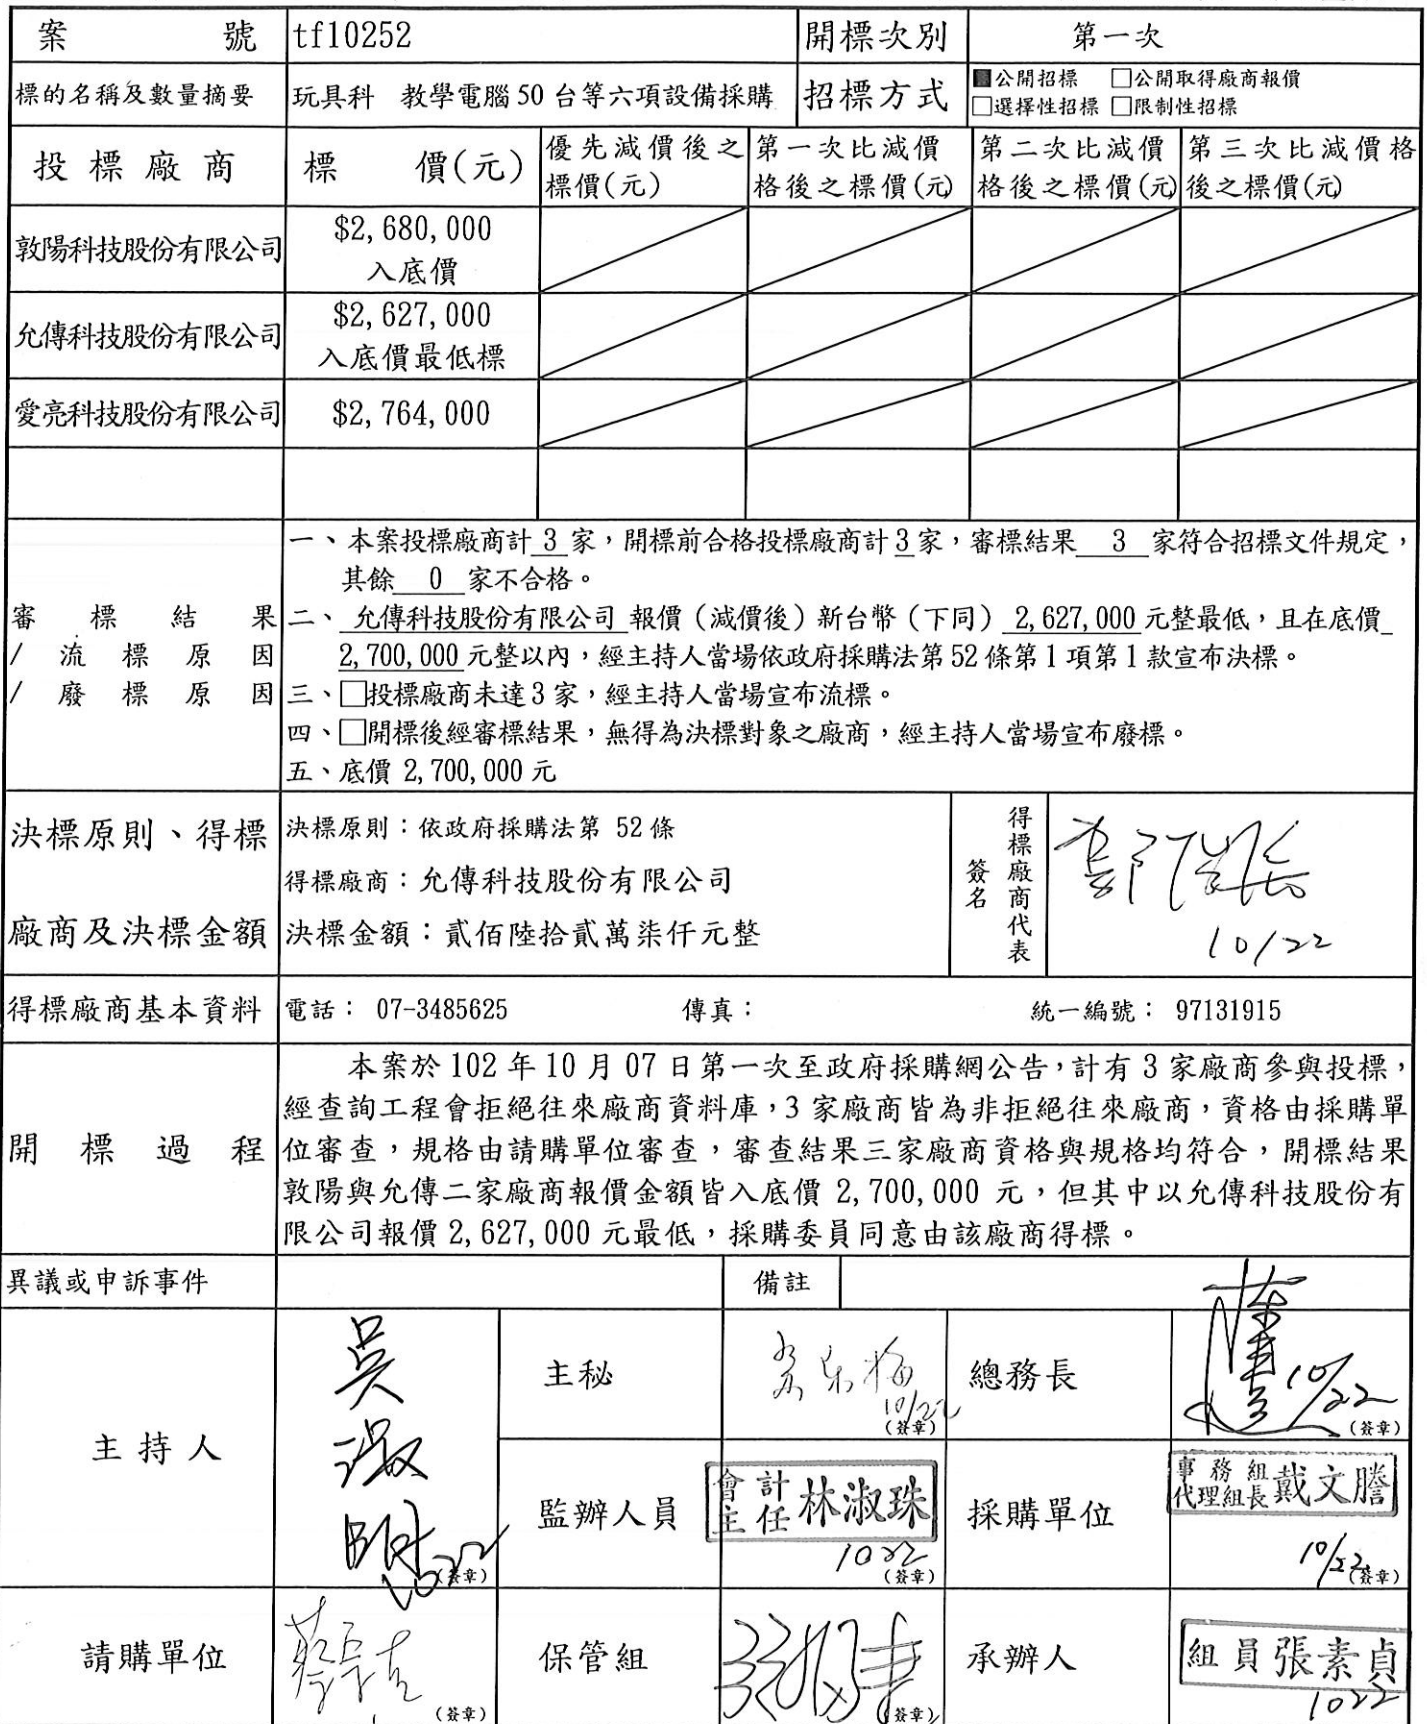 案 號 tf10252 開標次別 第一次
標的名稱及數量摘要 玩具科 教學電腦50台等六項設備採購 招標方式 ■公開招標 □公開取得廠商報價
□選擇性招標 □限制性招標
投標廠商 標 價(元) 優先減價後之標價(元) 第一次比減價格後之標價(元) 第二次比減價格後之標價(元) 第三次比減價格後之標價(元)
敦陽科技股份有限公司 $2,680,000
入底價
允傳科技股份有限公司 $2,627,000
入底價最低標
愛亮科技股份有限公司 $2,764,000
審標結果
/流標原因
/廢標原因
一、本案投標廠商計 3 家,開標前合格投標廠商計 3 家,審標結果 3 家符合招標文件規定,
其餘 0 家不合格。
二、允傳科技股份有限公司 報價(減價後)新台幣(下同) 2,627,000 元整最低,且在底價
2,700,000 元整以內,經主持人當場依政府採購法第52條第1項第1款宣布決標。
三、□投標廠商未達3家,經主持人當場宣布流標。
四、□開標後經審標結果,無得為決標對象之廠商,經主持人當場宣布廢標。
五、底價 2,700,000 元
決標原則、得標
廠商及決標金額
決標原則:依政府採購法第 52 條
得標廠商:允傳科技股份有限公司
決標金額:貳佰陸拾貳萬柒仟元整
得標廠商代表
簽名
10/22
得標廠商基本資料 電話: 07-3485625 傳真: 統一編號: 97131915
開標過程
本案於 102 年 10 月 07 日第一次至政府採購網公告,計有 3 家廠商參與投標,
經查詢工程會拒絕往來廠商資料庫,3 家廠商皆為非拒絕往來廠商,資格由採購單
位審查,規格由請購單位審查,審查結果三家廠商資格與規格均符合,開標結果
敦陽與允傳二家廠商報價金額皆入底價 2,700,000 元,但其中以允傳科技股份有
限公司報價 2,627,000 元最低,採購委員同意由該廠商得標。
異議或申訴事件 備註
主持人 吳淑明 1022 (簽章)
主秘 10/22 (簽章)
總務長 10/22 (簽章)
監辦人員 會計主任 林淑珠 1022 (簽章)
採購單位 事務組代理組長 戴文謄 10/22 (簽章)
請購單位 (簽章)
保管組 (簽章)
承辦人 組員張素貞 1022